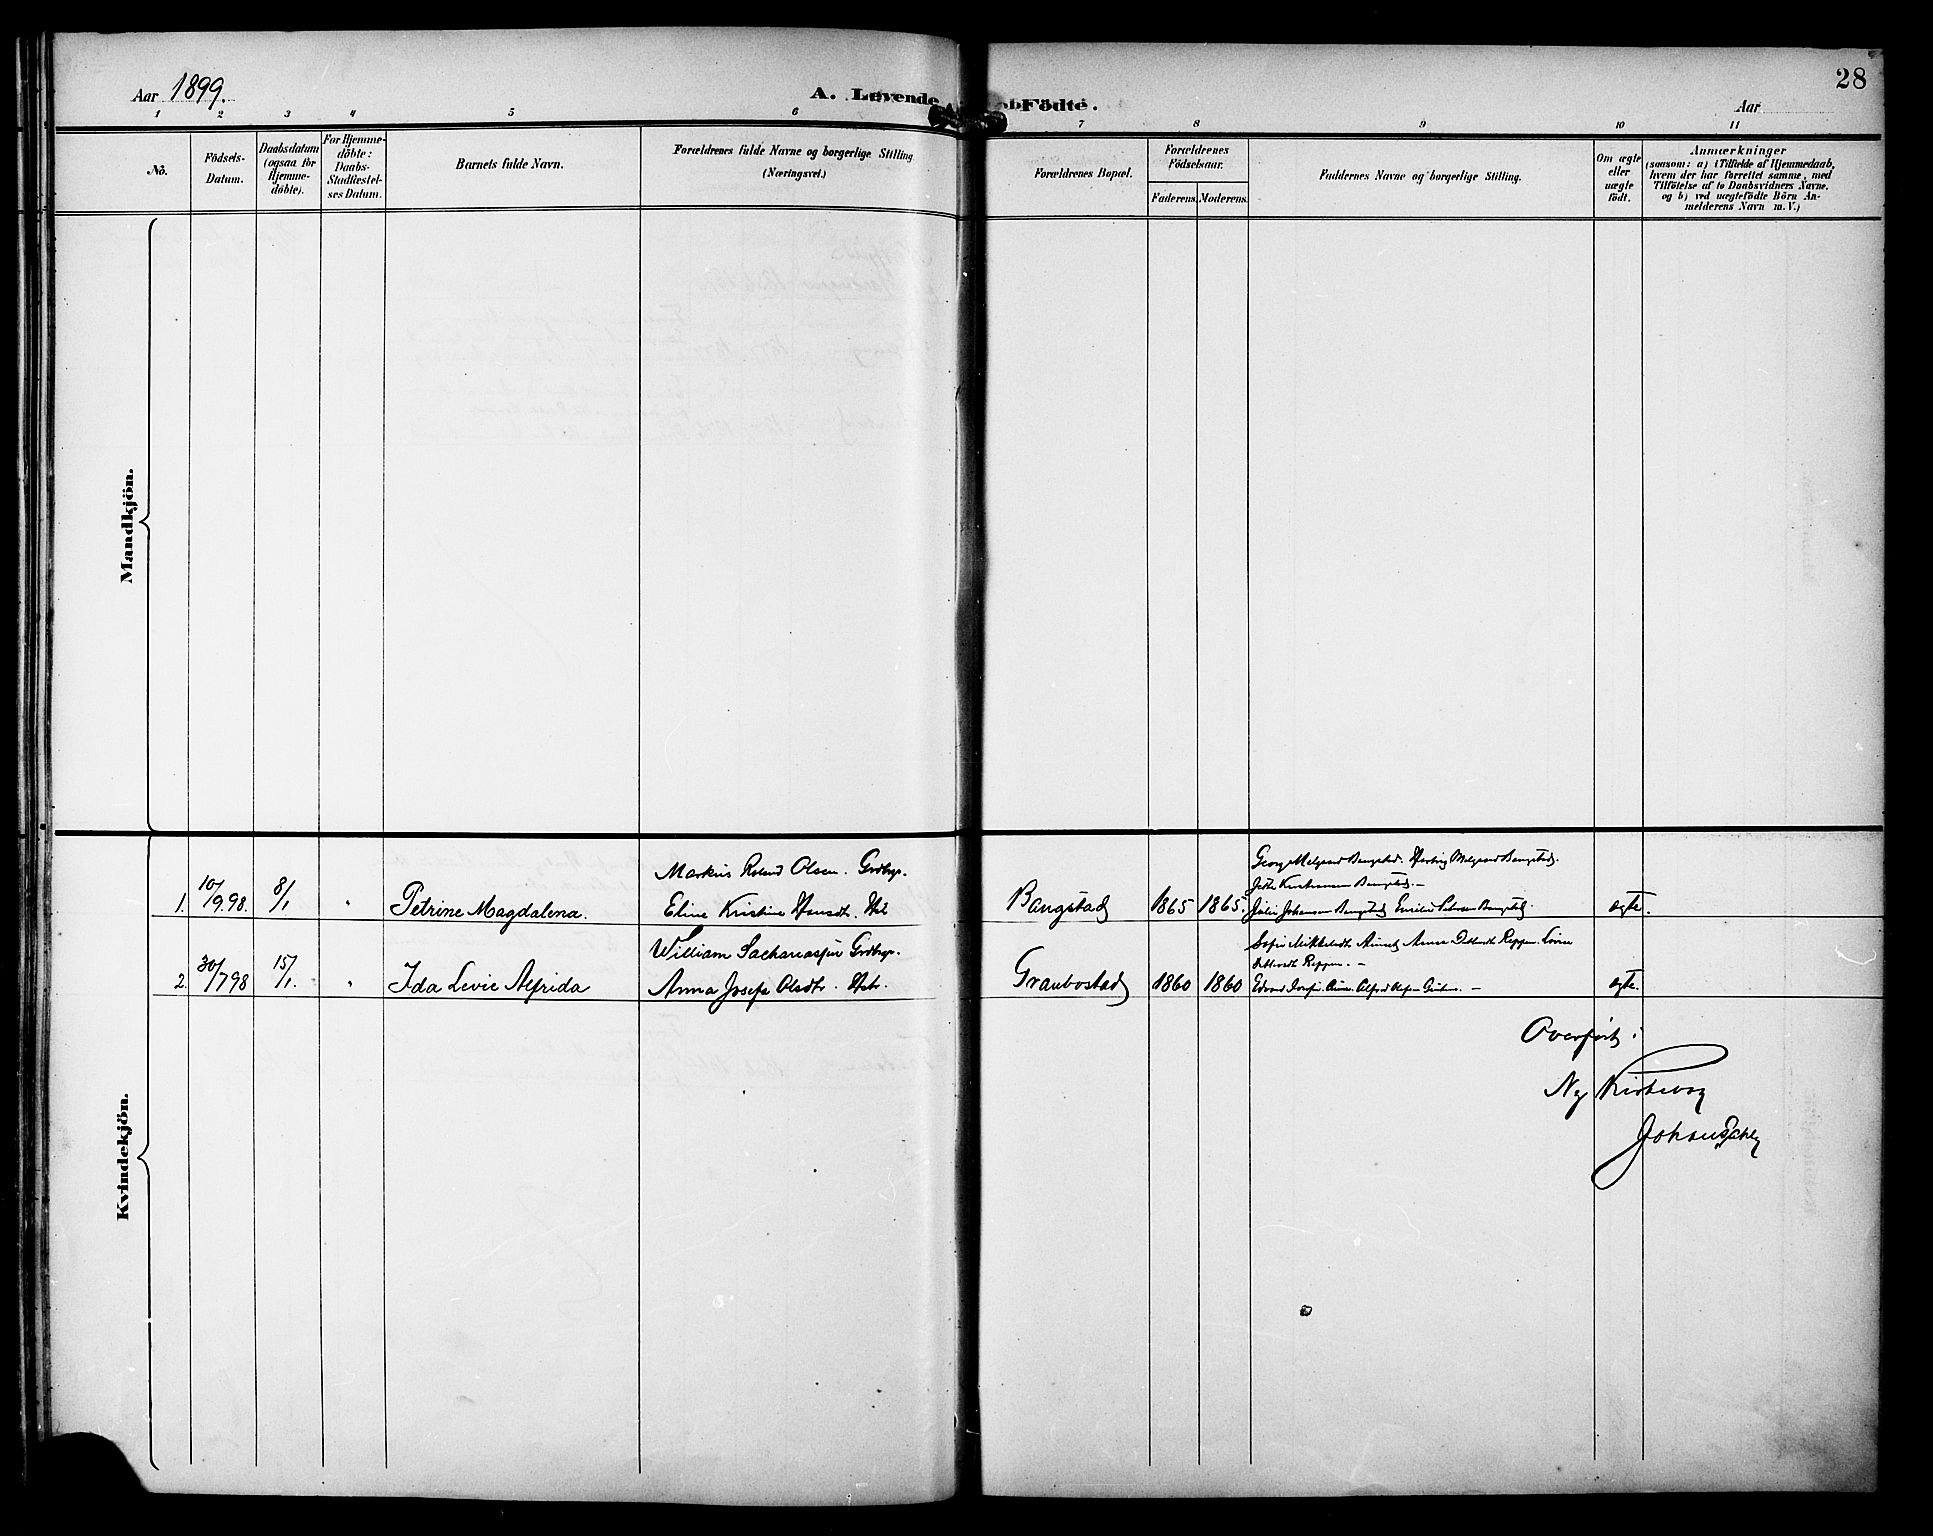 Aar 1899.
A. Levende Födte.
28
Aar
1 2 3 4 5 6 7 8 9 10 11
No.
Födsels-
Datum.
Daabsdatum
(ogsaa for
Hjemme-
döbte).
For Hjemme-
döbte:
Daabs-
Stadfæstel-
ses Datum.
Barnets fulde Navn.
Forældrenes fulde Navne og borgerlige Stilling
(Næringsvei.)
Forældrenes Bopæl.
Forældrenes
Födselsaar.
Faderens. Moderens.
Faddernes Navne og borgerlige Stilling.
Om ægte
eller
uægte
födt.
Anmærkninger
(saasom: a) i Tilfælde af Hjemmedaab,
hvem der har forrettet samme, med
Tilföielse af to Daabsvidners Navne,
og b) ved uægtefödte Börn An-
melderens Navn m. V.)
Mandkjön.
Kvindekjön.
1. 10/9 98. 8/1 " Petrine Magdalena.
Markus Roland Olsen. Grdbrgr.
Eline Kristine Hansdtr.
Bangstad 1865 1865.
Georg Melgaard Bangstad. Hartvig Melgaard Bangstad.
Kristiansen Bangstad. –
Julie Johansen Bangstad Emilie Petersen Bangstad.
ægte.
2. 30/7 98 15/1. " Ida Levie Alfrida
William Sachariassen Grdbrgr.
Anna Josefa Olsdtr.
Graubostad 1860 1860
Sofie Mikkelsdtr. Anna Reppen.
Reppen. –
Edvard Alfred
ægte.
Overført i
Ny Kirkebog